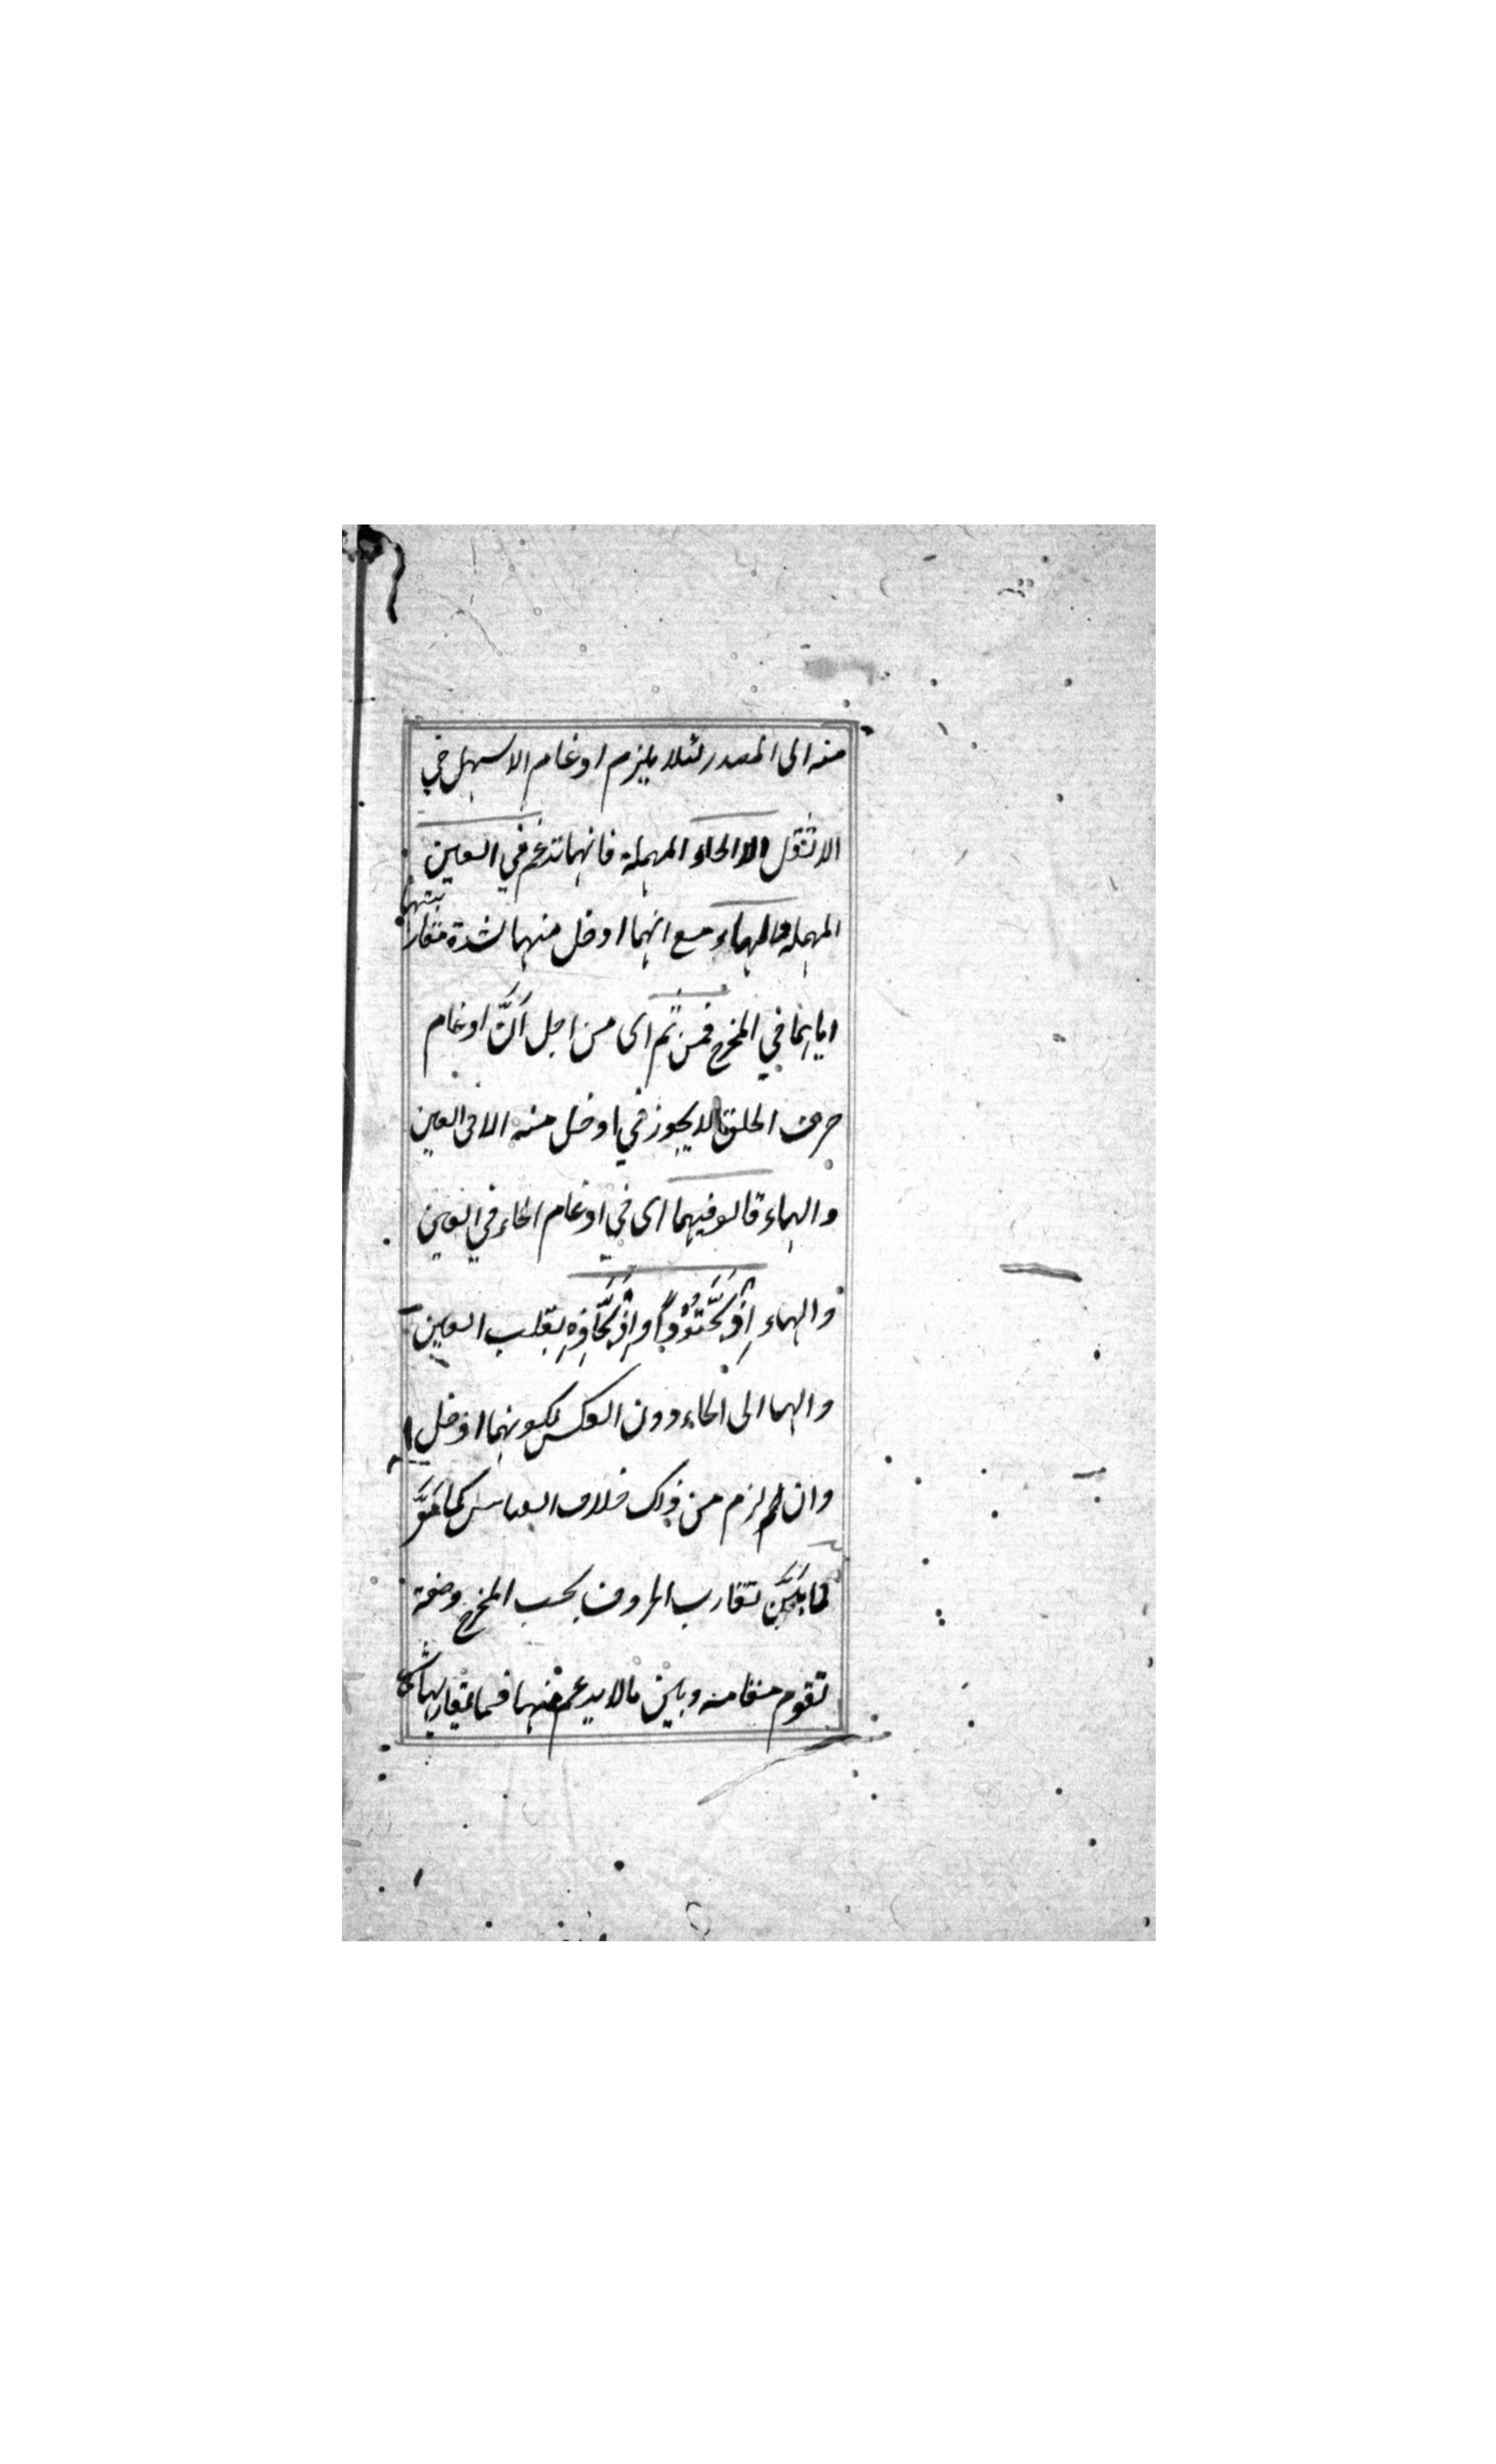 منه الى الصدر لئلا يلزم ادغام الاسهل في
الاثقل الا الحاء المهملة فانهما تدغم في العين
المهملة والهاء مع انهما ادخل منهما لشدة مقاربتهما
اياهما في المخرج فمن ثم اى من اجل اَنَّ ادغام
حرف الحلق لا يجوز في ادخل منه الا في العين
والهاء قالو فيهما اى في ادغام الحاء في العين
والهاء اِذْبَحَّتُوْدًا واِذْبَحَّاذِهِ بقلب العين
والها الى الحاء دون العكس لكونهما ادخل
وان لزم من ذلك خلاف القياس كما مَرَّ
لما بَيَّنَ تقارب الحروف بحسب المخرج وصفة
تقوم مقامه وبين ما لا يدغم منها فيما يقاربها